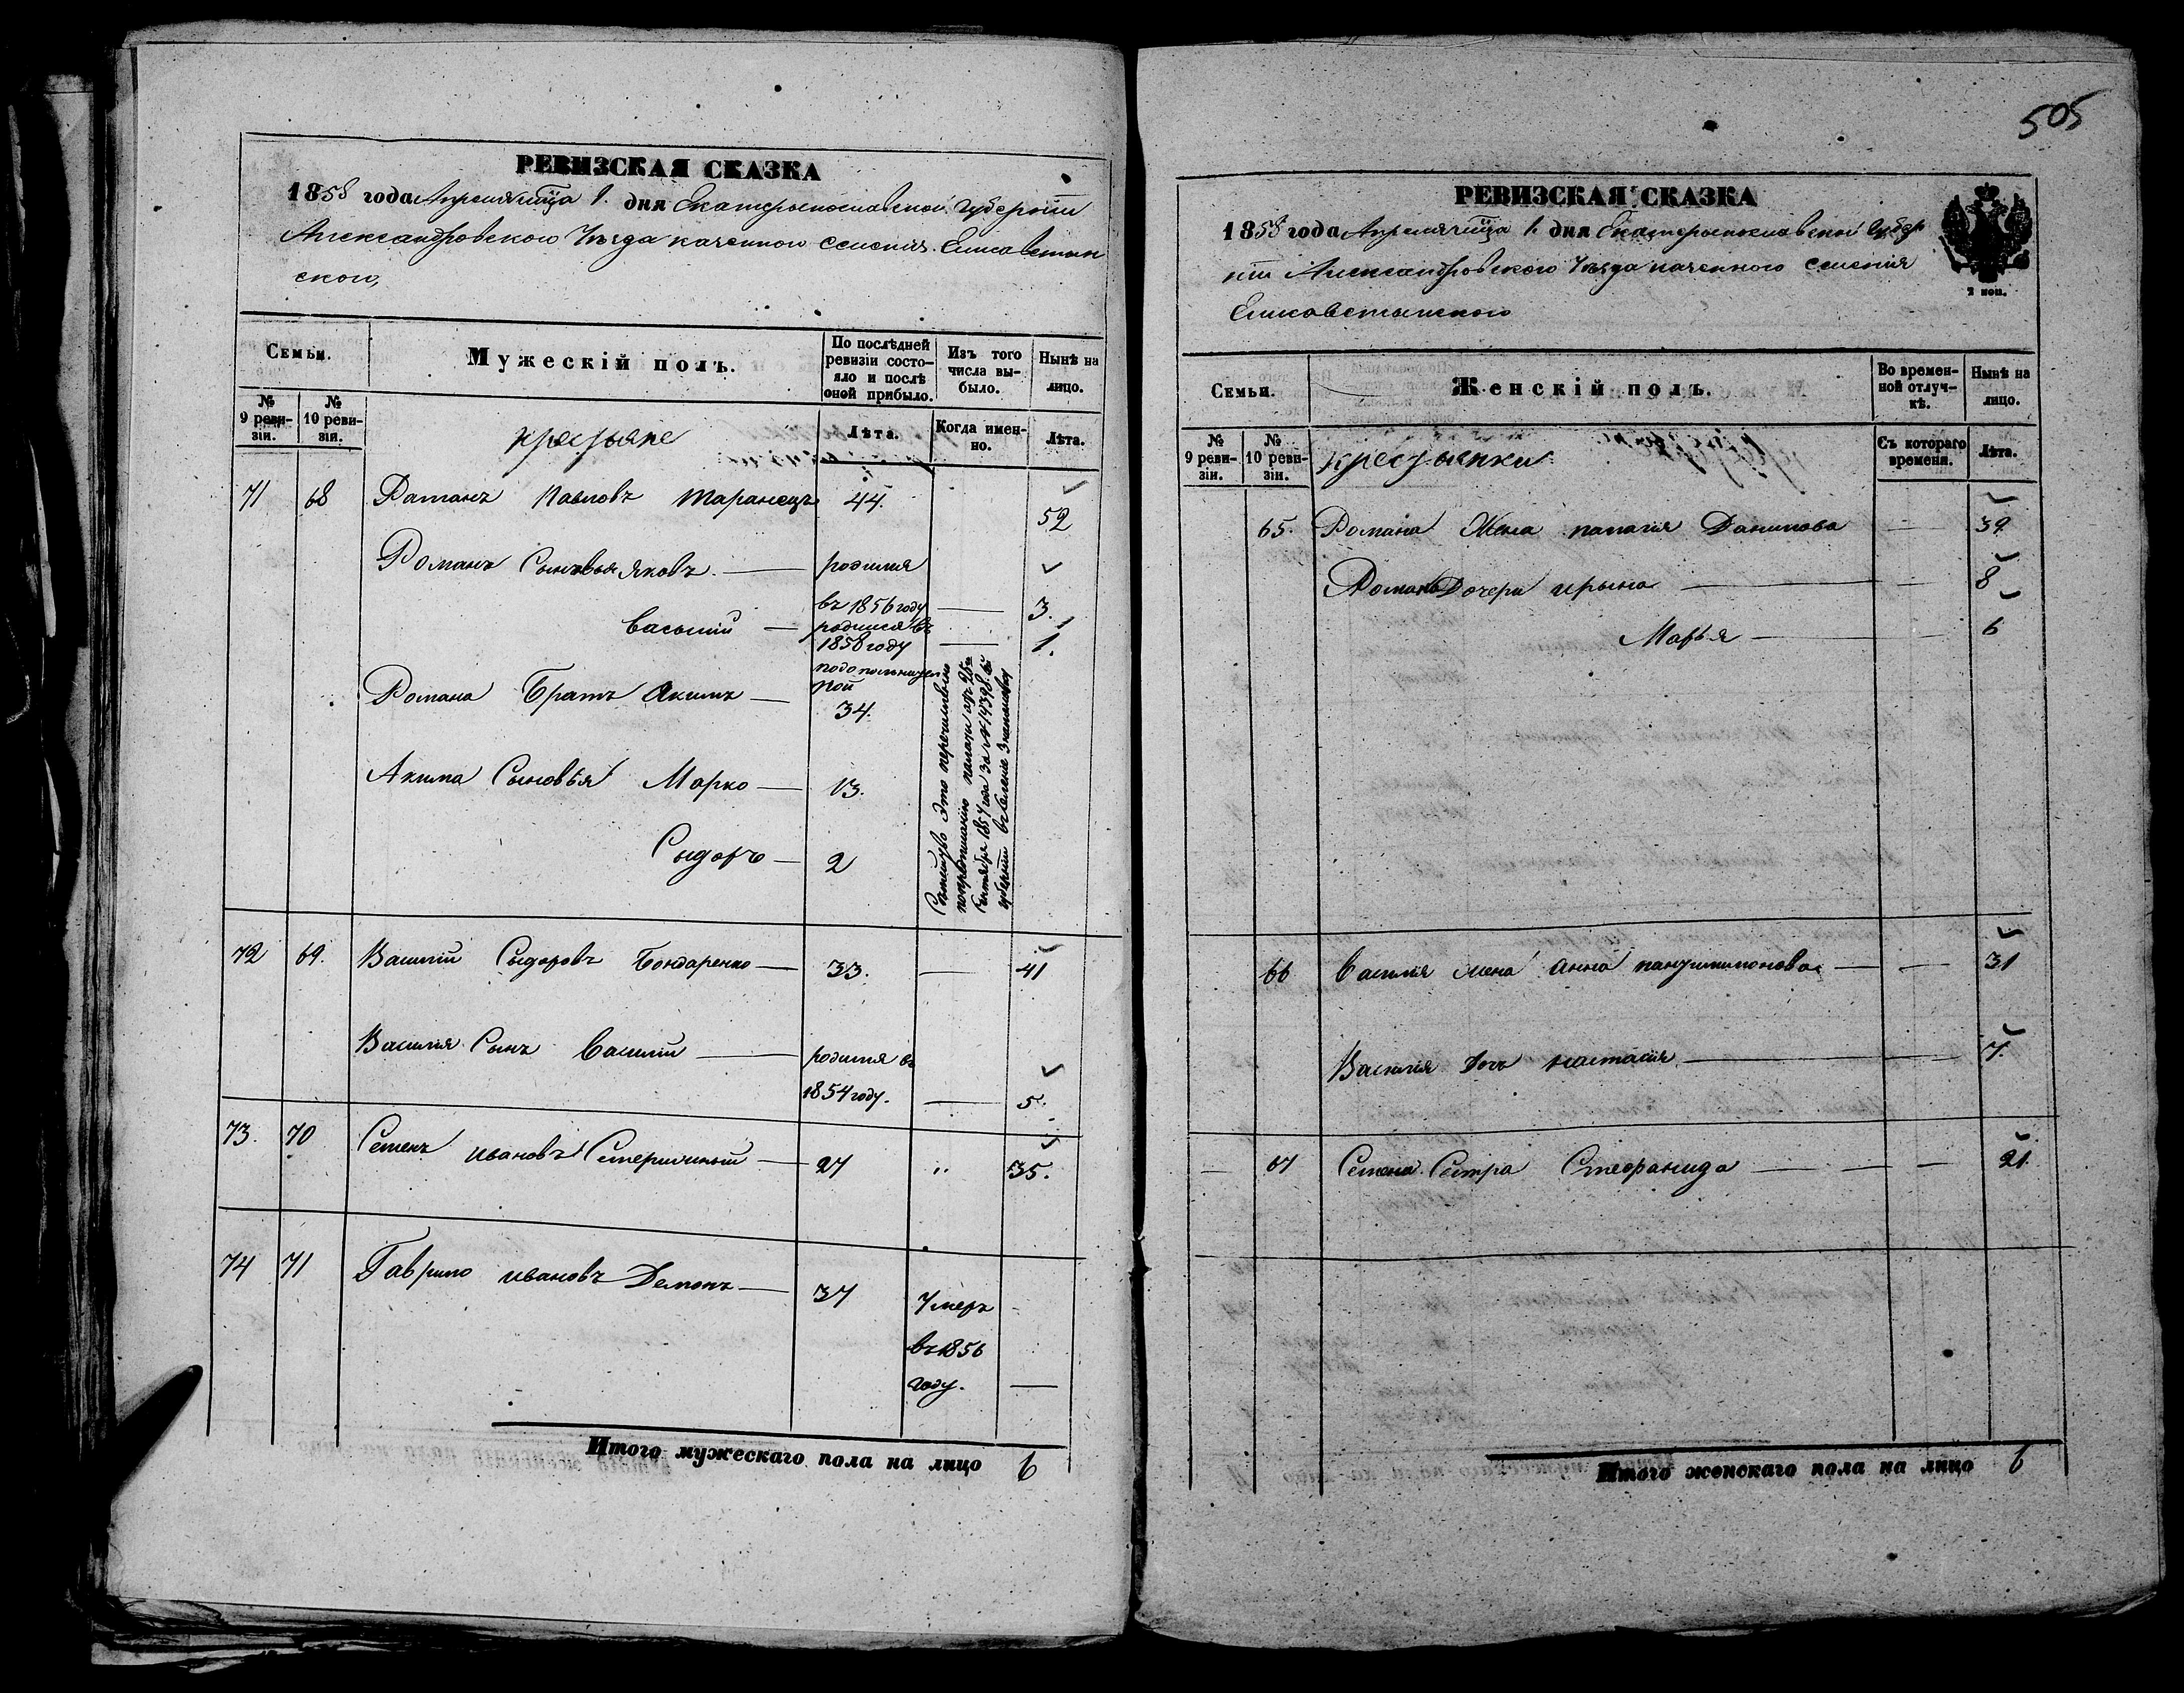 РЕВИЗСКАЯ СКАЗКА
1858 года Апреля мца 1. дня Екатеринославской Губернии
Александровского Уезда казенного селения Елисаветин
ского,
Семьи.
Мужескій полъ.
По послѣдней ревизіи состояло и послѣ оной прибыло.
Изъ того числа выбыло.
Нынѣ на лицо.
№ 9 ревизіи.
№ 10 ревизіи.
крестьяне
Лѣта.
Когда именно.
Лѣта.
71 68 Раманъ Павловъ Таранецъ 44. 52
Романа Сыновья Яковъ. — родился
въ 1856 году — 3.
Василий — родился въ
1858 году — 1.
Романа Братъ Акимъ —
34.
Акима Сыновья Марко — 13.
Сыдоръ — 2
Семейство Это перечислено
по предписанию палаты отъ 26го
Сентября 1857 года За № 14398. въ
губернии въ Селение
72 69. Василий Сыдоровъ Бондаренко — 33. — 41
Василия Сынъ Василий — родился въ
1854 году. — 5.
73. 70 Семенъ Ивановъ — 27 " 35.
74 71 Гаврило Ивановъ Демонъ — 37 Умеръ
въ 1856
году. —
Итого мужескаго пола на лицо 6
505
РЕВИЗСКАЯ СКАЗКА
1858 года Апреля мца 1. дня Екатеринославской Губер
нии Александровского Уезда казенного селения
Елисаветинского
2 коп.
Семьи.
Женскій полъ.
Во временной отлучкѣ.
Нынѣ на лицо.
№ 9 ревизіи.
№ 10 ревизіи.
крестьянки
Съ котораго времени.
Лѣта.
65. Романа Жена палагия Данилова — 39
Романа Дочери ирына — — 8
Марья — — 6
66 Василия жена Анна пантилимонова — — 31
Василия Дочь настасия — — 7.
— 67 Семена Сестра Стефанида — — — 21.
Итого женскаго пола на лицо 6